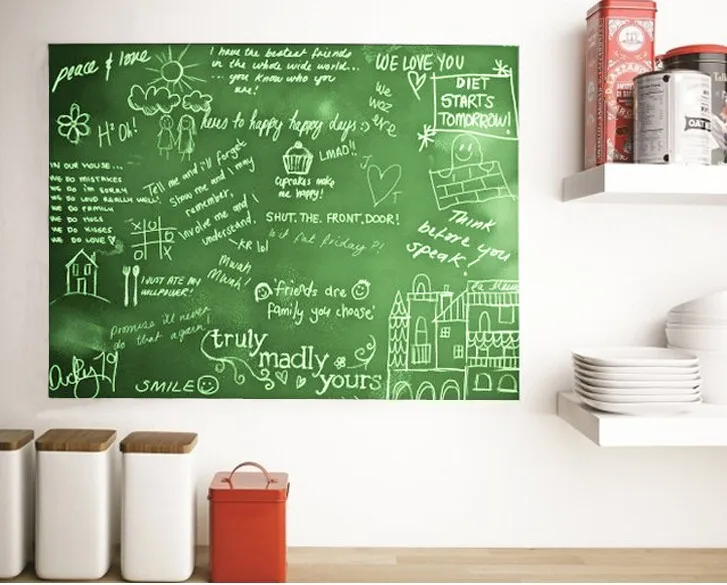 peace & love
I have the bestest friends
in the whole wide world...
... you know who you
are!
WE LOVE YOU
WE
WOZ
ERE
DIET
STARTS
TOMORROW!
H²Oh!
heres to happy happy days :)
LMAO!!
cupcakes make
me happy!
J
T
IN OUR HOUSE...
WE DO MISTAKES
WE DO I'M SORRY
WE DO LOUD REALLY WELL!
WE DO FAMILY
WE DO HUGS
WE DO KISSES
WE DO LOVE
Tell me and i'll forget
show me and I may
remember,
involve me and I
understand.
-KR lol
X O
X O
O X
SHUT. THE. FRONT. DOOR!
is it fat friday?!
Think
before you
speak!
Mwah
Mwah!
I JUST ATE MY
WILLPOWER!
friends are
family you choose
promise i'll never
do that again!
truly
madly
yours
SMILE
OAT